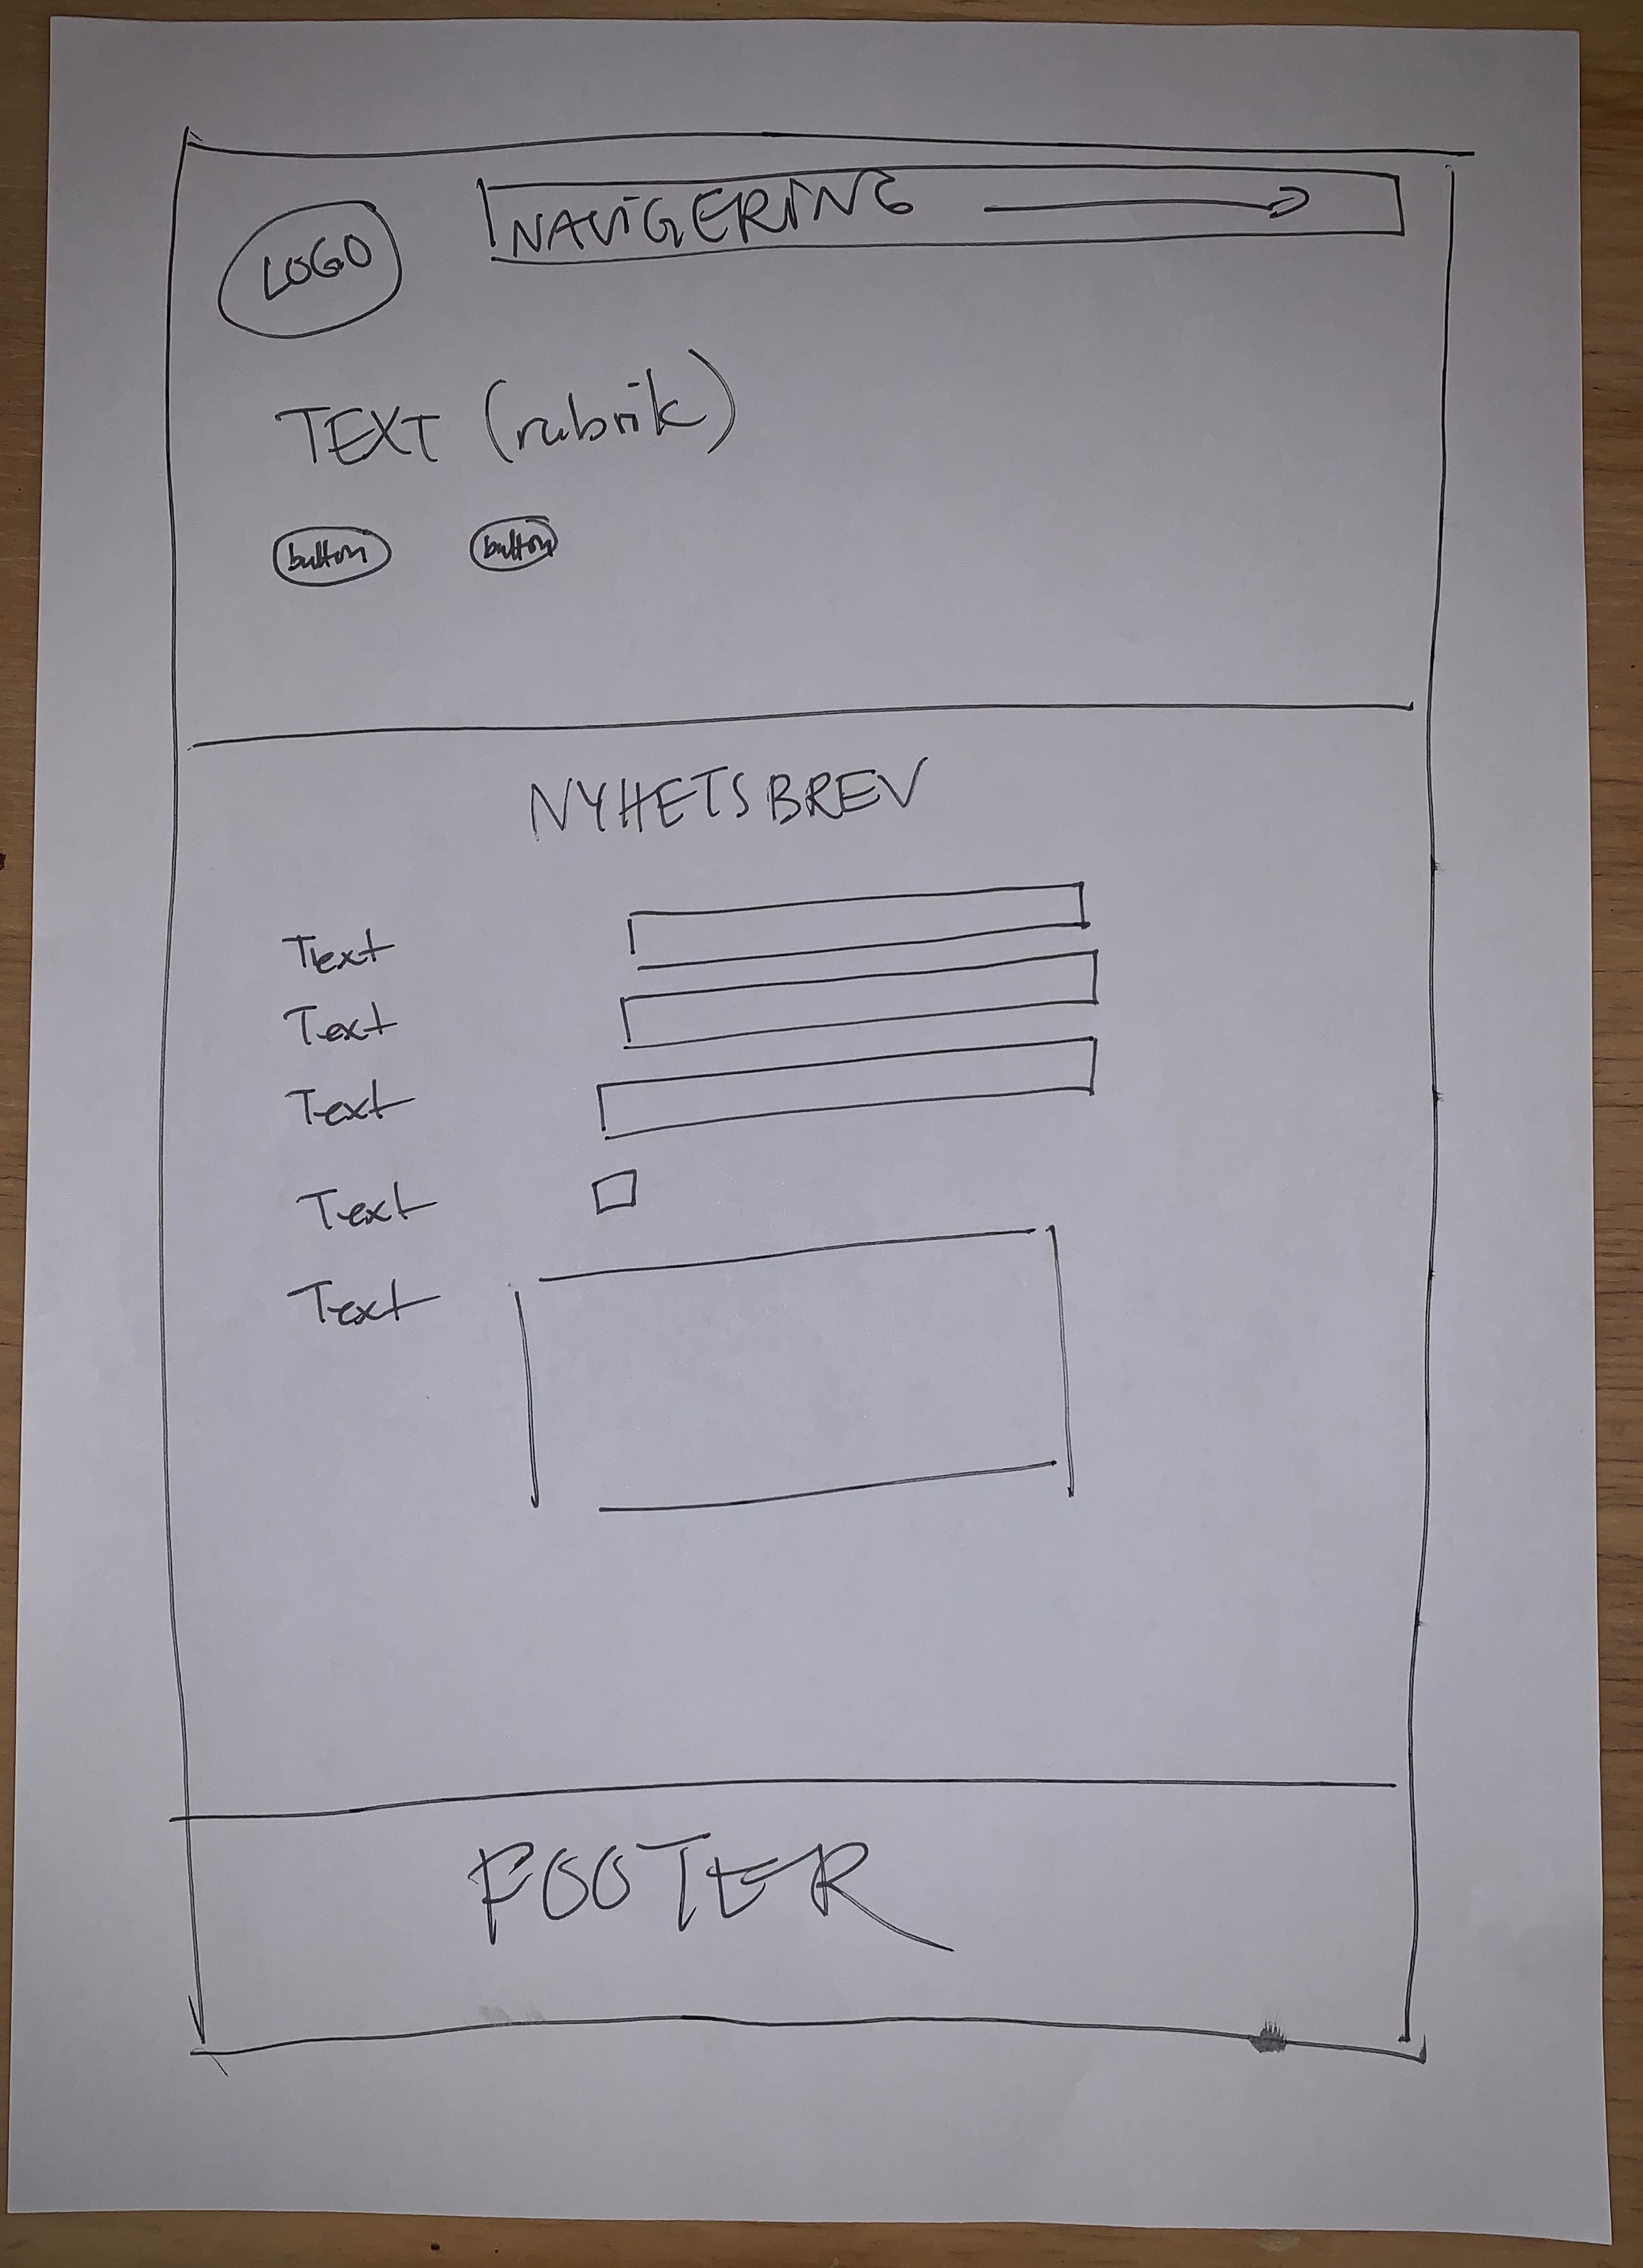 LOGO
NAVIGERING
TEXT (rubrik)
button button
NYHETSBREV
Text
Text
Text
Text
Text
FOOTER